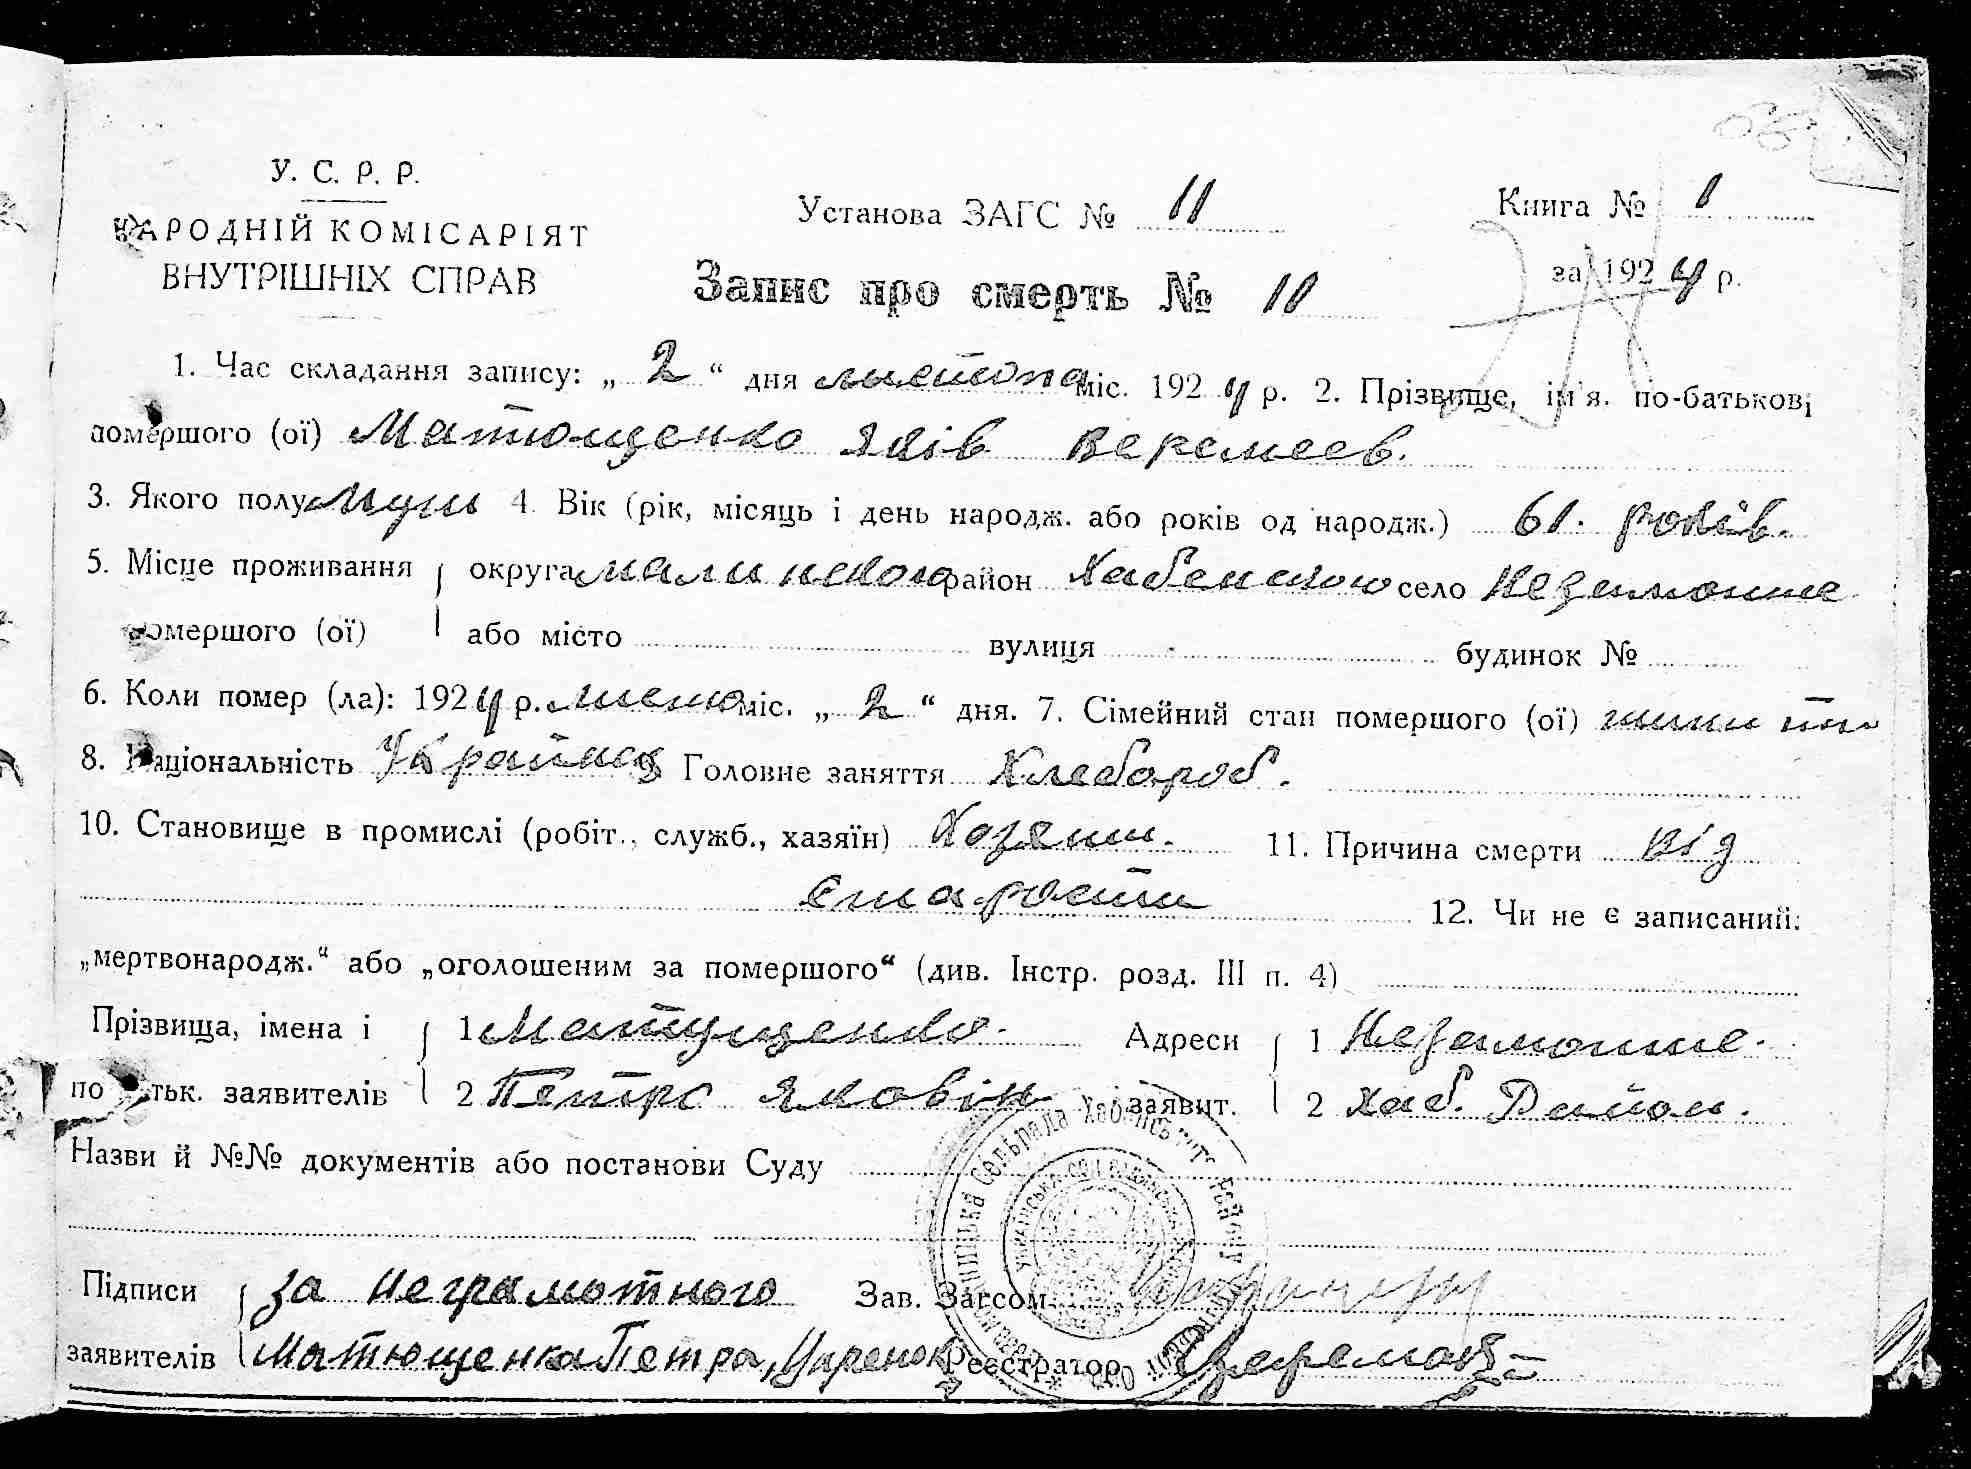 У. С. Р. Р.
НАРОДНІЙ КОМІСАРІЯТ
ВНУТРІШНІХ СПРАВ
Установа ЗАГС № 11
Книга № 1
за 1924 р.
Запис про смерть № 11
1. Час складання запису: „ 2 “ дня лютого міс. 1924 р. 2. Прізвище, ім'я. по-батькові
помершого (ої) Матющенко Яків Веремеев.
3. Якого полу Муж 4. Вік (рік, місяць і день народж. або років од народж.) 61. років.
5. Місце проживання округа Малинского район Хабенского село Незаможне
помершого (ої) або місто вулиця будинок №
6. Коли помер (ла): 1924 р. міс. „ 2 “ дня. 7. Сімейний стан помершого (ої)
8. Національність Українец Головне заняття Хлебароб.
10. Становище в промислі (робіт., служб., хазяїн) Хозяин. 11. Причина смерти від
старости 12. Чи не є записаний:
„мертвонародж.“ або „оголошеним за помершого“ (див. Інстр. розд. III п. 4)
Прізвища, імена і 1 Матущенко. Адреси 1 Незаможне.
по батьк. заявителів 2 Петро Яковін заявит. 2 Хаб. Район.
Назви й №№ документів або постанови Суду
Підписи за неграмотного Зав. Загсом
заявителів Матющенка Петра, Царенок Реєстратор